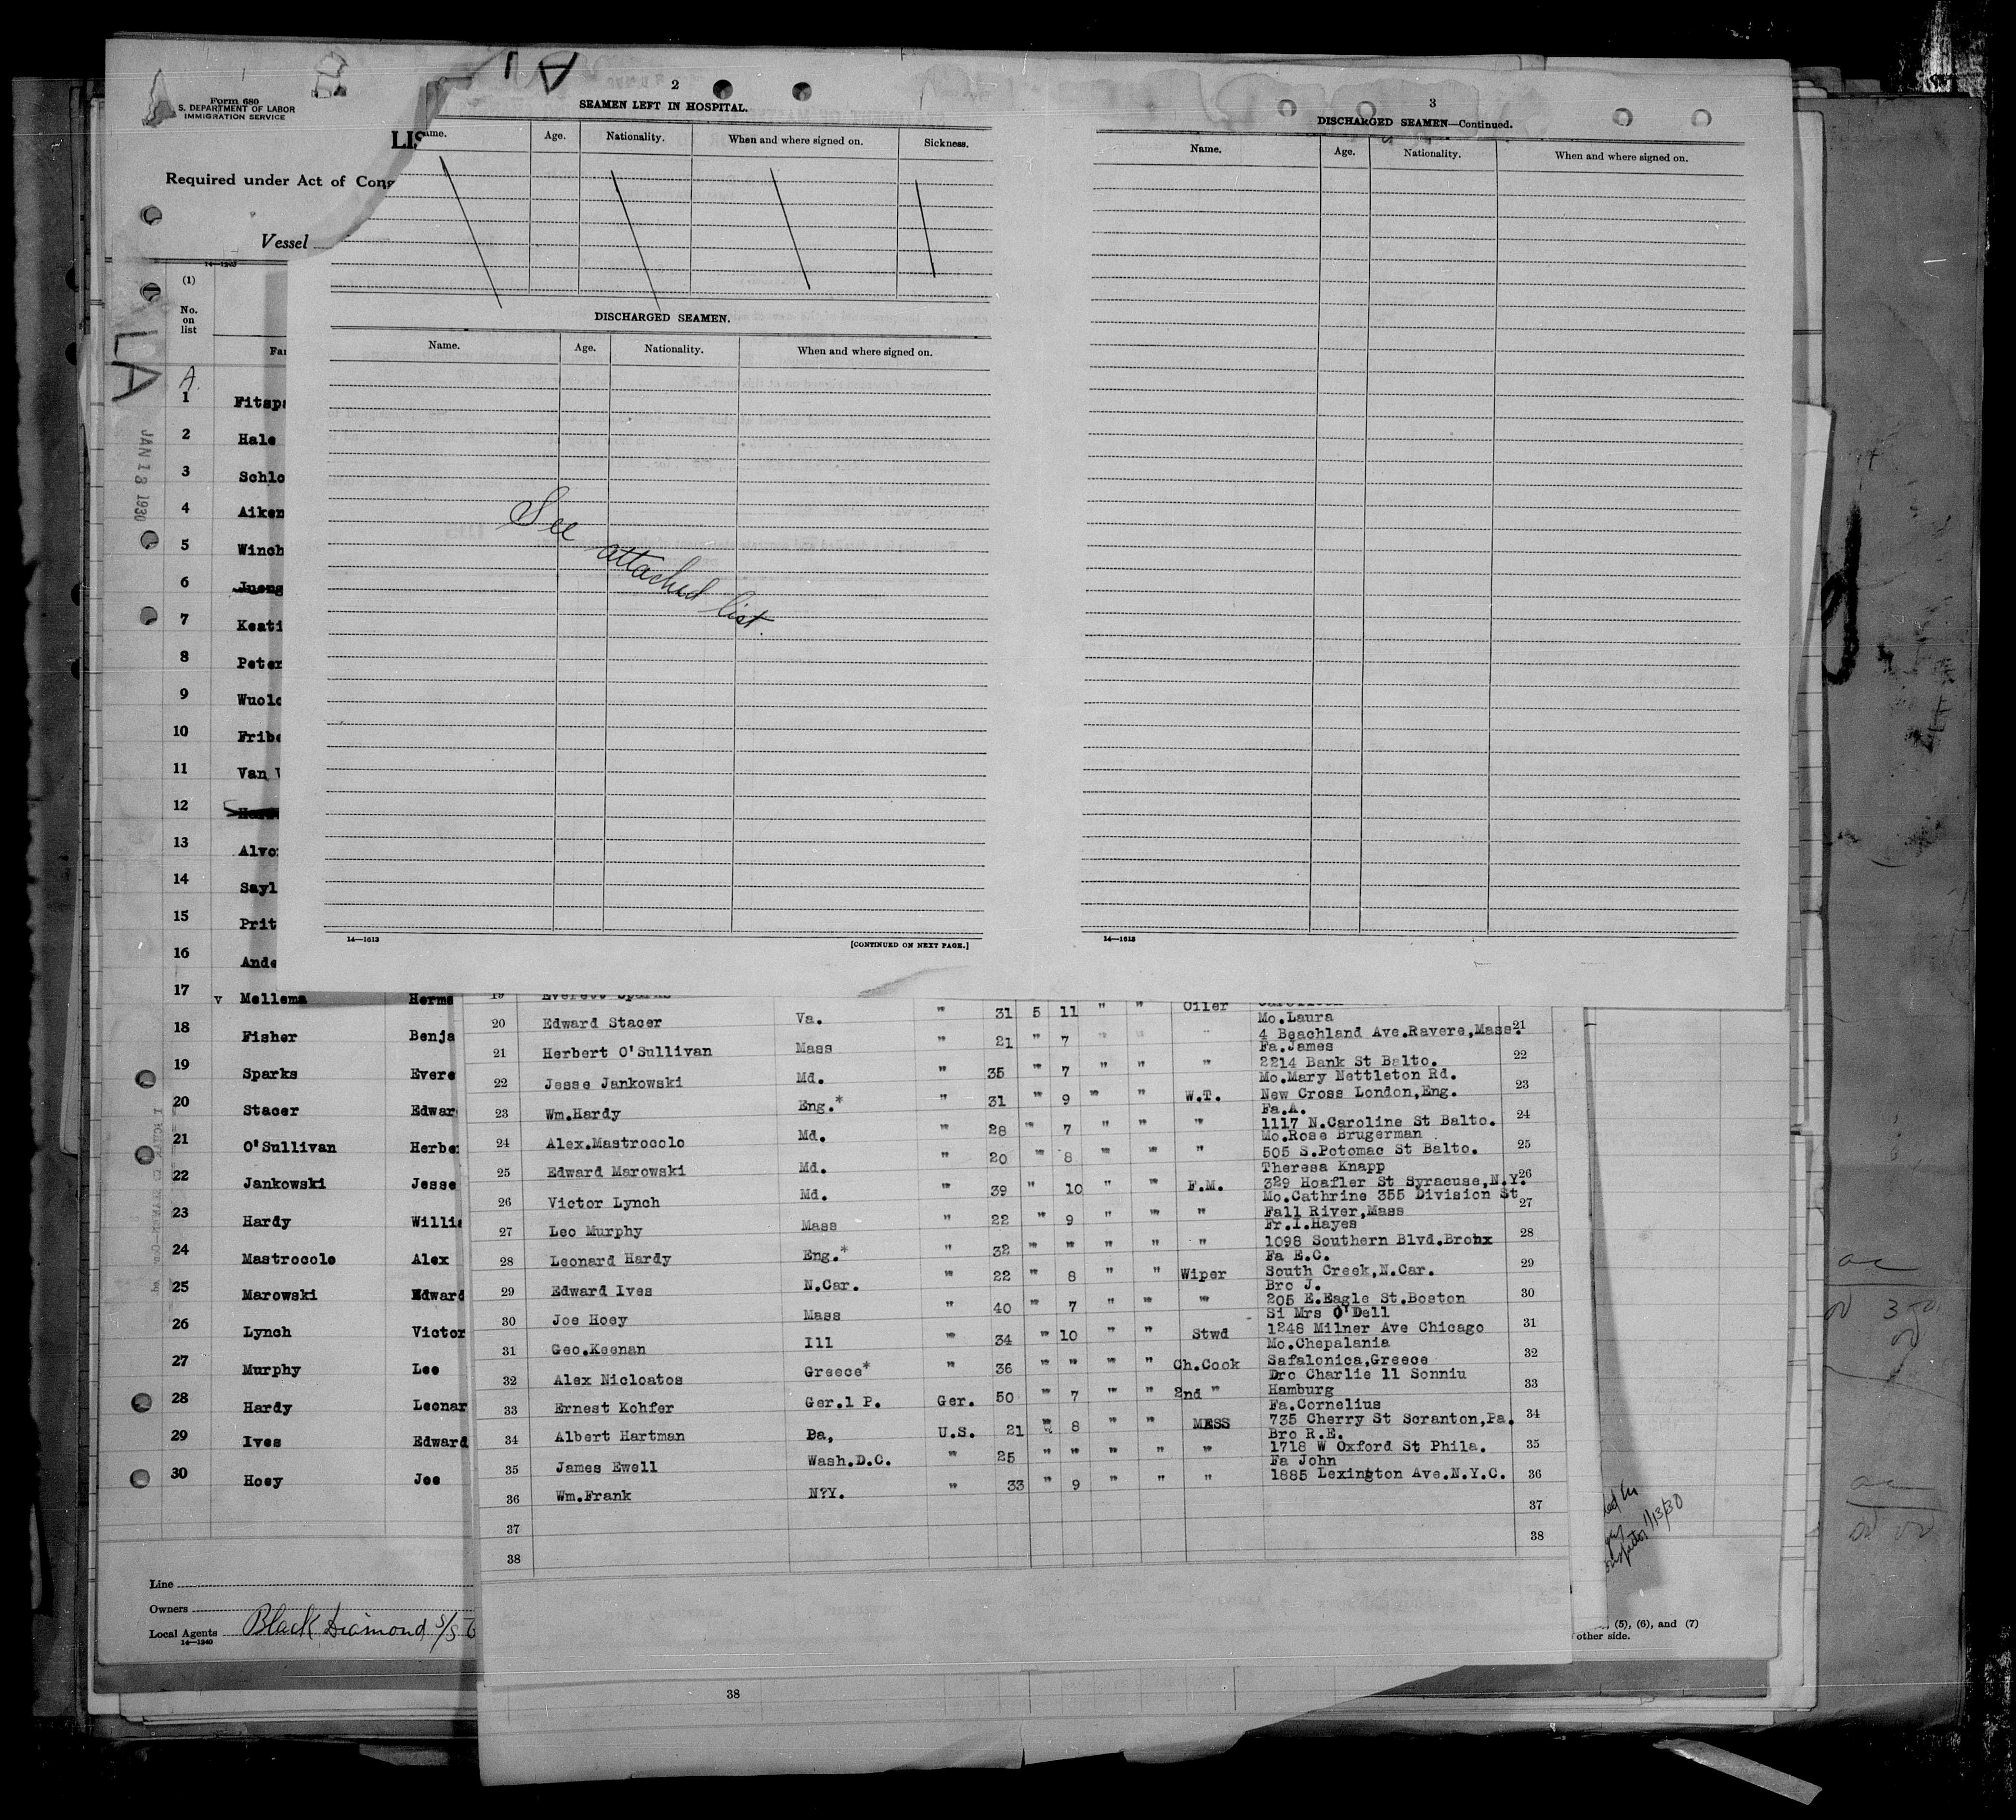 Form 680
S. DEPARTMENT OF LABOR
IMMIGRATION SERVICE
LIS
Required under Act of Cong
Vessel
14—1240
(1)
No.
on
list
Fa
A.
LA
JAN 13 1930
1 Fitzpa
2 Hale
3 Schlo
4 Aiken
5 Winch
6 Jueng
7 Keati
8 Peter
9 Wuolo
10 Fribe
11 Van V
12
13 Alvo
14 Sayl
15 Prit
16 Ande
17 v Mellema Herme
18 Fisher Benja
19 Sparks Evere
20 Stacer Edwar
21 O'Sullivan Herbe
22 Jankowski Jesse
23 Hardy Willia
24 Mastrocole Alex
25 Marowski Edward
26 Lynch Victor
27 Murphy Leo
28 Hardy Leonar
29 Ives Edward
30 Hoey Joe
Line
Owners
Local Agents Black Diamond S/S
14—1240
2
SEAMEN LEFT IN HOSPITAL.
ame. Age. Nationality. When and where signed on. Sickness.
DISCHARGED SEAMEN.
Name. Age. Nationality. When and where signed on.
See attached list.
14—1613 [CONTINUED ON NEXT PAGE.]
3
DISCHARGED SEAMEN—Continued.
Name. Age. Nationality. When and where signed on.
14—1613
19 Everett Sparks
20 Edward Stacer Va. " 31 5 11 " " Oiler
Mo.Laura
21 Herbert O'Sullivan Mass " 21 " 7 " " " 4 Beachland Ave.Ravere,Mass. 21
Fa.James
22 Jesse Jankowski Md. " 35 " 7 " " " 2214 Bank St Balto. 22
Mo.Mary Nettleton Rd.
23 Wm.Hardy Eng.* " 31 " 9 " " W.T. New Cross London,Eng. 23
Fa.A.
24 Alex.Mastrocolo Md. " 28 " 7 " " " 1117 N.Caroline St Balto. 24
Mo.Rose Brugerman
25 Edward Marowski Md. " 20 " 8 " " " 505 S.Potomac St Balto. 25
Theresa Knapp
26 Victor Lynch Md. " 39 " 10 " " F.M. 329 Hoafler St Syracuse,N.Y. 26
Mo.Cathrine 355 Division St
27 Leo Murphy Mass " 22 " 9 " " " Fall River,Mass 27
Fr.I.Hayes
28 Leonard Hardy Eng.* " 32 " " " " " 1098 Southern Blvd.Bronx 28
Fa E.C.
29 Edward Ives N.Car. " 22 " 8 " " Wiper South Creek,N.Car. 29
Bro J.
30 Joe Hoey Mass " 40 " 7 " " " 205 E.Eagle St.Boston 30
Si Mrs O'Dell
31 Geo.Keenan Ill " 34 " 10 " " Stwd 1248 Milner Ave Chicago 31
Mo.Chepalania
32 Alex Nicloatos Greece* " 36 " " " " Ch.Cook Safalonica,Greece 32
Dro Charlie 11 Sonniu
33 Ernest Kohfer Ger.1 P. Ger. 50 " 7 " " 2nd " Hamburg 33
Fa.Cornelius
34 Albert Hartman Pa, U.S. 21 " 8 " " MESS 735 Cherry St Scranton,Pa. 34
Bro R.E.
35 James Ewell Wash.D.C. " 25 " " " " " 1718 W Oxford St Phila. 35
Fa John
36 Wm.Frank N?Y. " 33 " 9 " " " 1885 Lexington Ave.N.Y.C. 36
37 37
38 38
1/13/30
(5), (6), and (7)
other side.
38